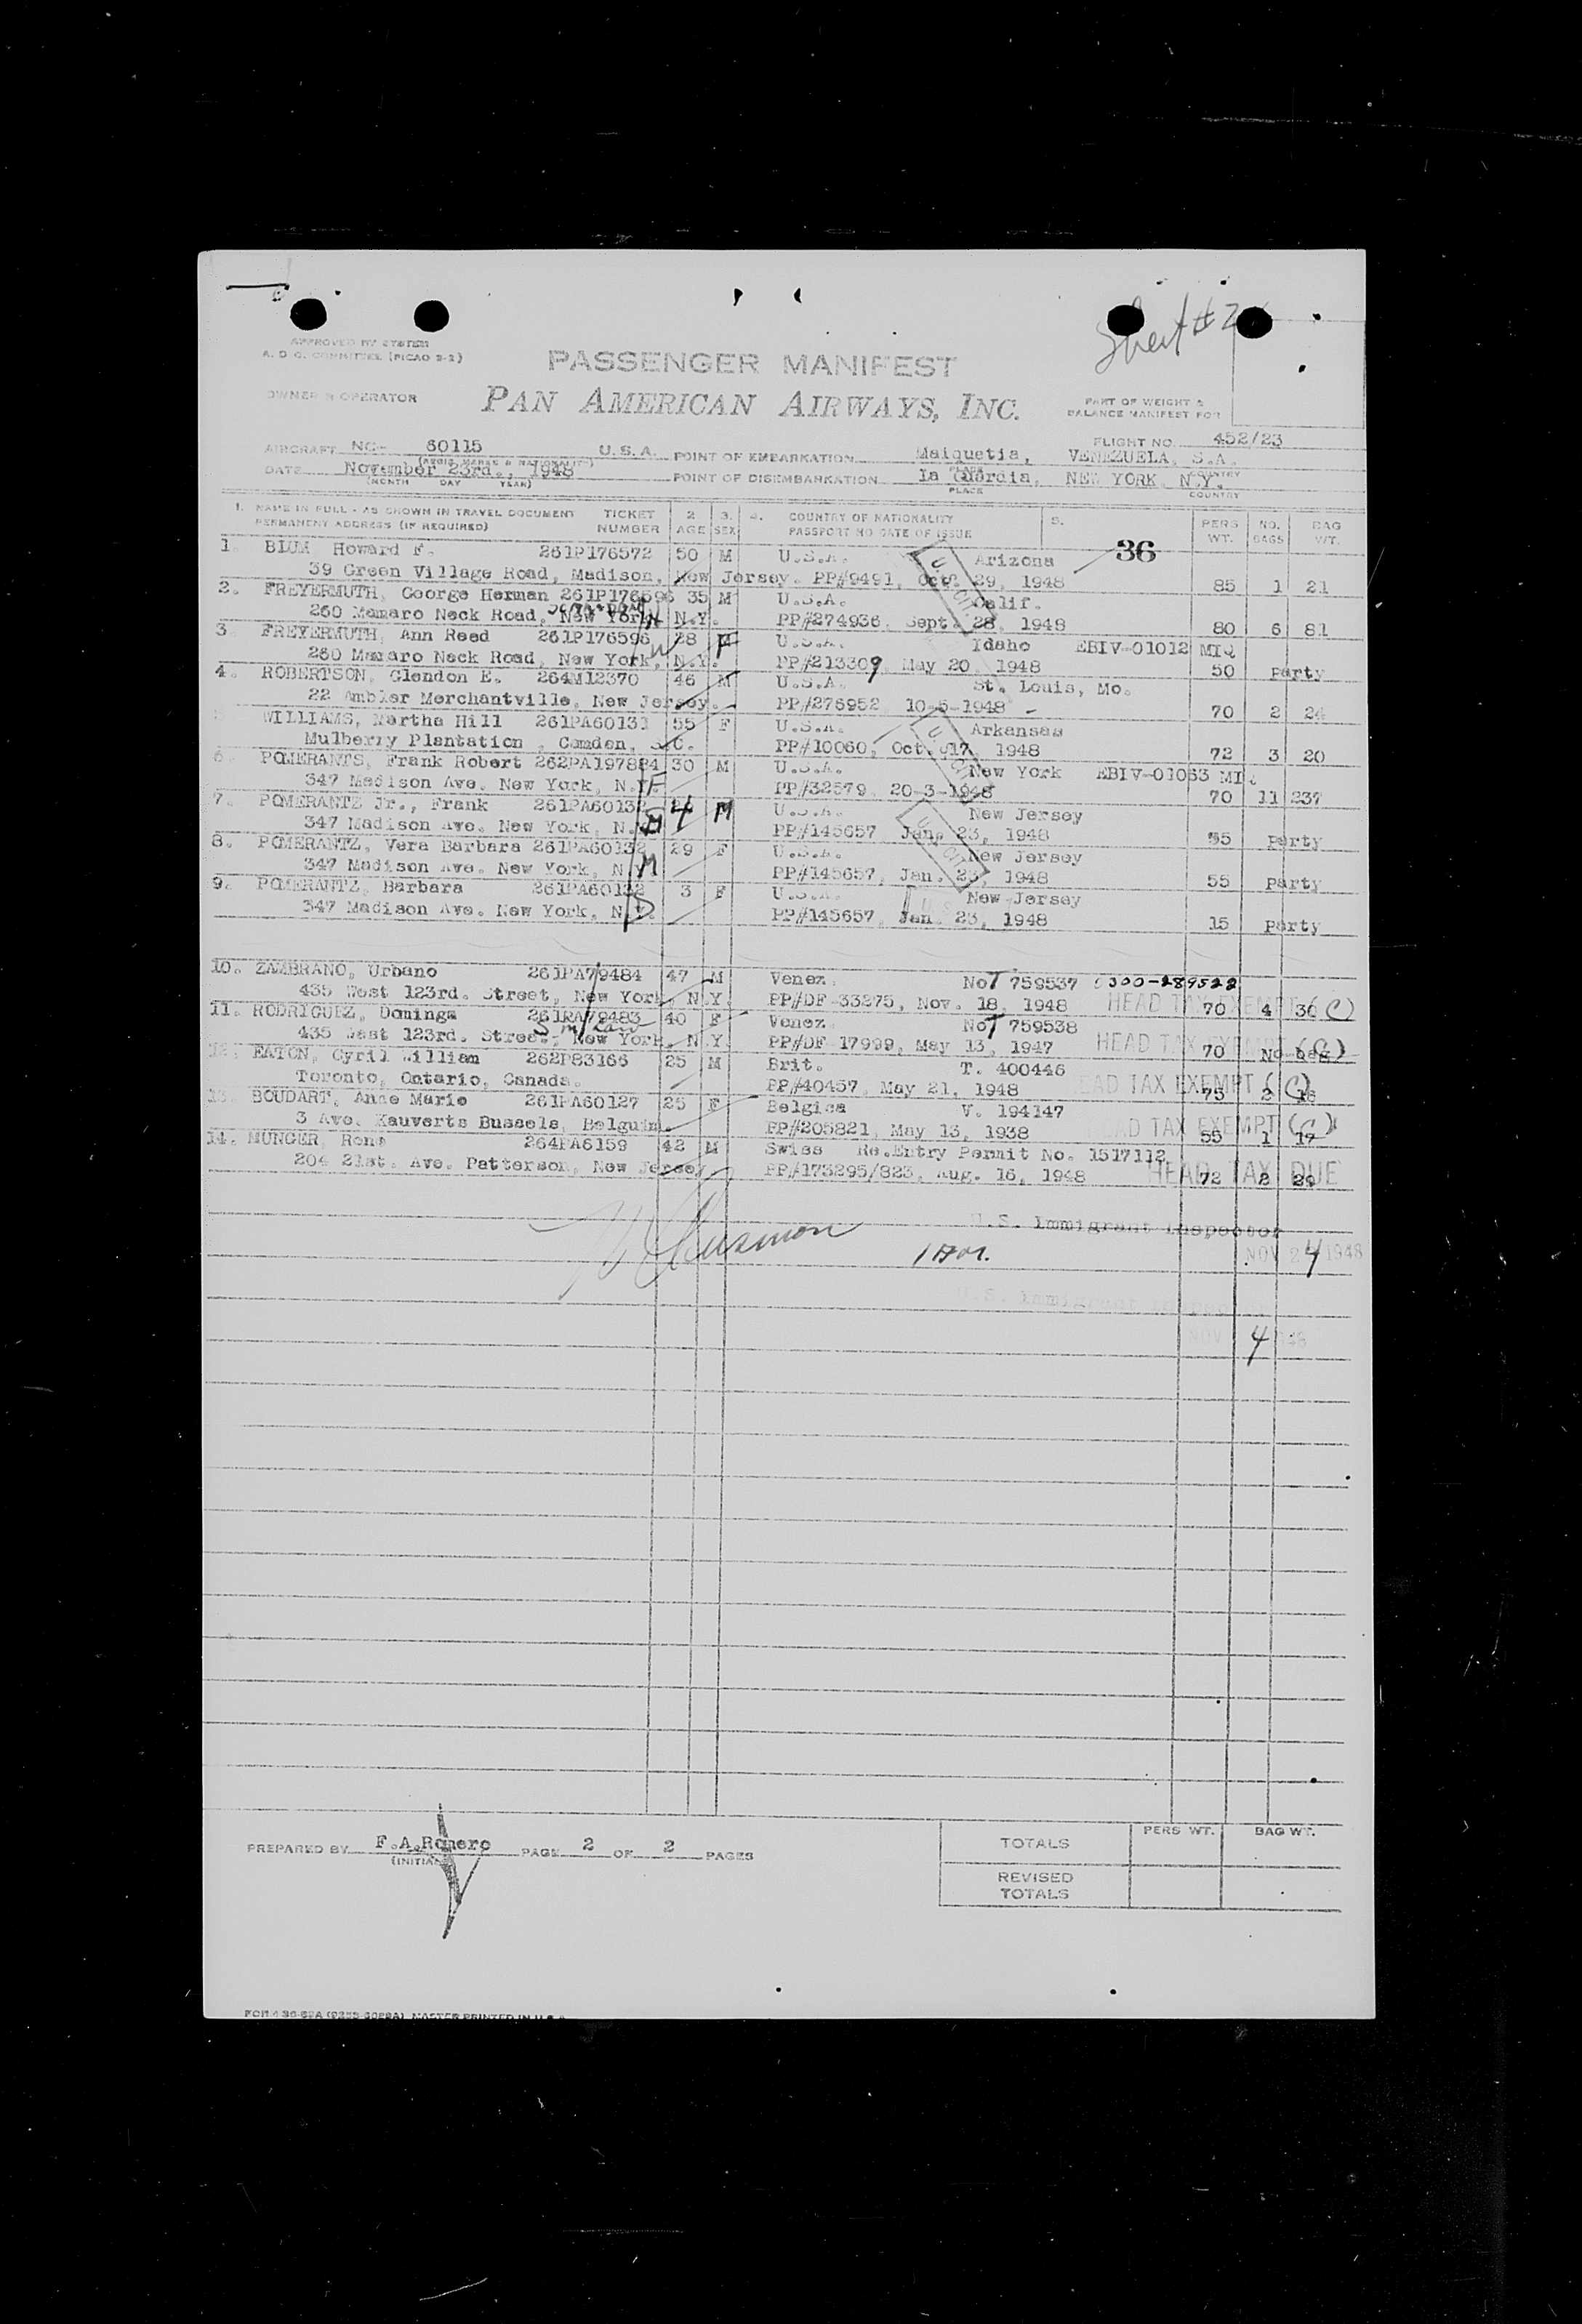 Sheet #2
APPROVED BY SYSTEM
A. D. C. COMMITTEE (PICAO 2-2)
PASSENGER MANIFEST
OWNER OR OPERATOR PAN AMERICAN AIRWAYS, INC.
PART OF WEIGHT &
BALANCE MANIFEST FOR
FLIGHT NO. 452/23
AIRCRAFT NC- 60115 U.S.A. POINT OF EMBARKATION Maiquetia, VENEZUELA, S.A.
(REGIS. MARKS & NATIONALITY) PLACE COUNTRY
DATE November 23rd., 1948 POINT OF DISEMBARKATION La Guardia, NEW YORK, N.Y.
(MONTH DAY YEAR) PLACE COUNTRY
1. NAME IN FULL - AS SHOWN IN TRAVEL DOCUMENT TICKET 2 3. 4. COUNTRY OF NATIONALITY 5. PERS NO. BAG
PERMANENT ADDRESS (IF REQUIRED) NUMBER AGE SEX PASSPORT NO DATE OF ISSUE WT. BAGS WT.
36
1. BLUM, Howard F. 261P176572 50 M U.S.A. Arizona
39 Green Village Road, Madison, New Jersey. PP#9491, Oct. 29, 1948 85 1 21
2. FREYERMUTH, George Herman 261P176596 35 M U.S.A. Calif.
260 Mamaro Neck Road, New York, N.Y. PP#274936, Sept. 28, 1948 80 6 81
3. FREYERMUTH, Ann Reed 261P176596 28 F U.S.A. Idaho EBIV-01012 MIQ
260 Mamaro Neck Road, New York, N.Y. PP#213309, May 20, 1948 50 party
4. ROBERTSON, Glendon E. 264M12370 46 M U.S.A. St. Louis, Mo.
22 Ambler Merchantville, New Jersey. PP#276952 10-5-1948 70 2 24
WILLIAMS, Martha Hill 261PA60131 55 F U.S.A. Arkansas
Mulberry Plantation, Camden, S.C. PP#10060, Oct. 17, 1948 72 3 20
6. POMERANTS, Frank Robert 262PA197884 30 M U.S.A. New York EBIV-01063 MIQ
347 Madison Ave. New York, N.Y. PP#32579, 20-3-1948 70 11 237
7. POMERANTZ Jr., Frank 261PA60132 4 M U.S.A. New Jersey
347 Madison Ave. New York, N.Y. PP#145657 Jan. 23, 1948 35 party
8. POMERANTZ, Vera Barbara 261PA60132 29 F U.S.A. New Jersey
347 Madison Ave. New York, N.Y. M PP#145657, Jan. 23, 1948 55 party
9. POMERANTZ, Barbara 261PA60132 3 F U.S.A. New Jersey
347 Madison Ave. New York, N.Y. D PP#145657, Jan. 23, 1948 15 party
10. ZAMBRANO, Urbano 261PA79484 47 M Venez. No T 759537 0300-289522
435 West 123rd. Street, New York, N.Y. PP#DF 33275, Nov. 18, 1948 HEAD TAX EXEMPT (C) 70 4 36
11. RODRIGUEZ, Dominga 261PA79483 40 F Venez. No T 759538
435 West 123rd. Street, New York, N.Y. PP#DF 17999, May 13, 1947 HEAD TAX EXEMPT (C) 70 No bag
12. EATON, Cyril William 262P83166 25 M Brit. T. 400446
Toronto, Ontario, Canada. PP#40457, May 21, 1948 HEAD TAX EXEMPT (C) 75 2 16
13. BOUDART, Anne Marie 261PA60127 25 F Belgica V. 194147
3 Ave. Kauverts Bussels, Belguim. PP#205821, May 13, 1938 HEAD TAX EXEMPT (C) 55 1 17
14. MUNGER, Rene 264PA6159 42 M Swiss Re.Entry Permit No. 1517112
204 21st. Ave. Patterson, New Jersey. PP#173295/823, Aug. 16, 1948 HEAD TAX DUE 72 2 29
U.S. Immigrant Inspector
NOV 24 1948
U.S. Immigrant Inspector
NOV 4
PREPARED BY F.A.Romero PAGE 2 OF 2 PAGES
(INITIAL)
TOTALS PERS WT. BAG WT.
REVISED
TOTALS